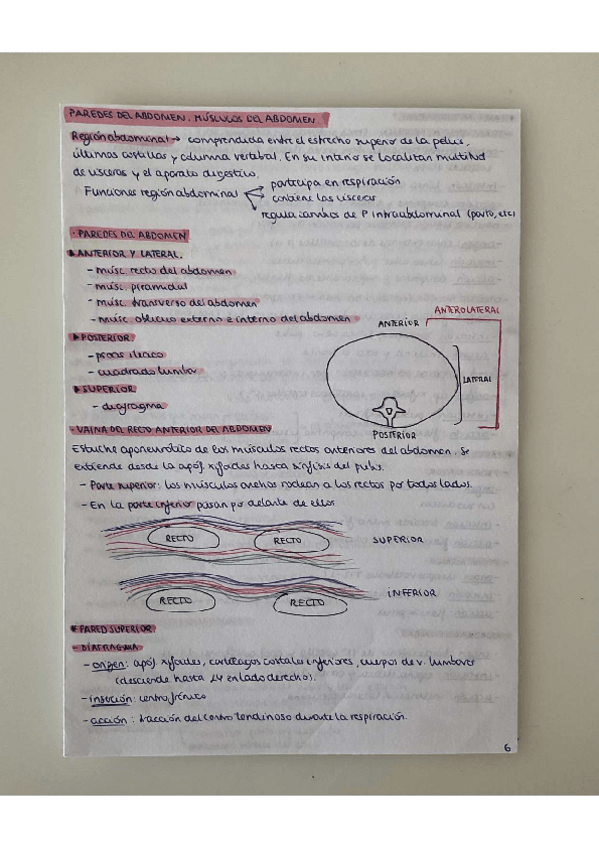 PAREDES DEL ABDOMEN. MÚSCULOS DEL ABDOMEN.
Región abdominal → comprendida entre el estrecho superio de la pelvis,
últimas costillas y columna vertebral. En su interio se localizan multitud
de vísceras y el aparato digestivo.
Funciones región abdominal participa en respiración
contiene las vísceras
regula cambios de P intraabdominal (parto, etc)
- PAREDES DEL ABDOMEN
ANTERIOR Y LATERAL.
- músc. recto del abdomen
- músc. piramidal
- músc. transverso del abdomen
- músc oblicuo externo e interno del abdomen
ANTEROLATERAL
ANTERIOR
LATERAL
POSTERIOR
POSTERIOR
- psoas iliaco
- cuadrado lumbar
SUPERIOR
- diafragma
- VAINA DEL RECTO ANTERIOR DEL ABDOMEN
Estuche aponeurótico de los músculos rectos anteriores del abdomen. Se
extiende desde la apóf. xifoides hasta sínfisis del pubis.
- Parte superior: los músculos anchos rodean a los rectos por todos lados.
- En la parte inferior pasan por delante de ellos
RECTO RECTO SUPERIOR
RECTO RECTO INFERIOR
PARED SUPERIOR
- DIAFRAGMA
- origen: apóf. xifoides, cartílagos costales inferiores, cuerpos de v. lumbares
(desciende hasta L4 en lado derecho).
- inserción: centro frénico
- acción: tracción del centro tendinoso durante la respiración.
6